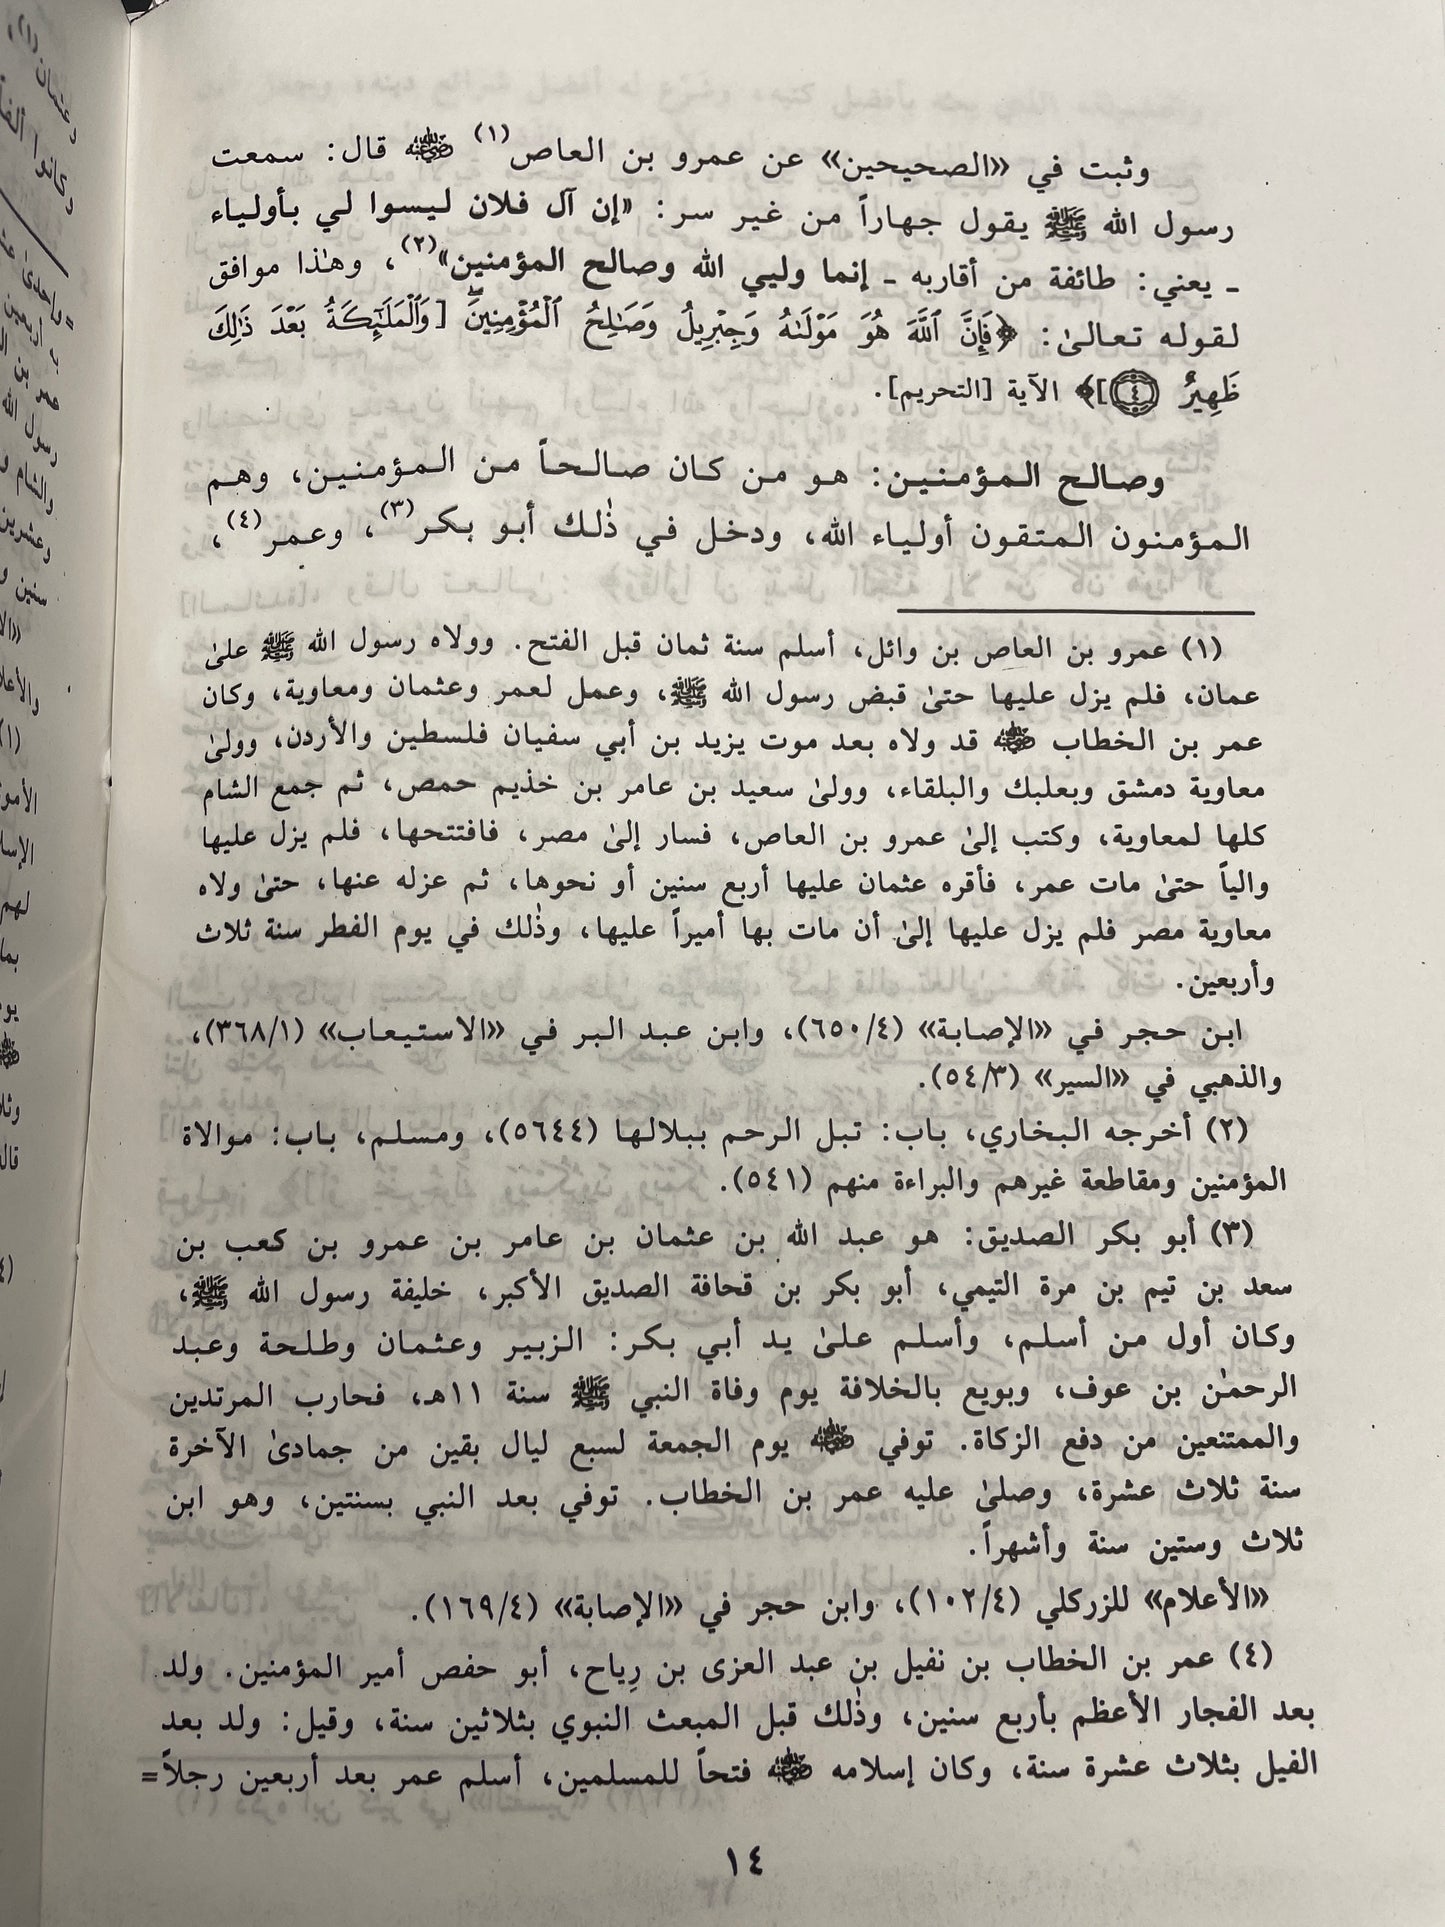 وثبت في «الصحيحين» عن عمرو بن العاص(١) رضي الله عنه قال: سمعت
رسول الله ﷺ يقول جهاراً من غير سر: «إن آل فلان ليسوا لي بأولياء
ـ يعني: طائفة من أقاربه ـ إنما وليي الله وصالح المؤمنين»(٢)، وهٰذا موافق
لقوله تعالىٰ: ﴿فَإِنَّ ٱللَّهَ هُوَ مَوْلَىٰهُ وَجِبْرِيلُ وَصَٰلِحُ ٱلْمُؤْمِنِينَۖ [وَٱلْمَلَٰٓئِكَةُ بَعْدَ ذَٰلِكَ
ظَهِيرٌ ٤]﴾ الآية [التحريم].
وصالح المؤمنين: هو من كان صالحاً من المؤمنين، وهم
المؤمنون المتقون أولياء الله، ودخل في ذٰلك أبو بكر(٣)، وعمر(٤)،
(١) عمرو بن العاص بن وائل، أسلم سنة ثمان قبل الفتح. وولاه رسول الله ﷺ علىٰ
عمان، فلم يزل عليها حتىٰ قبض رسول الله ﷺ، وعمل لعمر وعثمان ومعاوية، وكان
عمر بن الخطاب رضي الله عنه قد ولاه بعد موت يزيد بن أبي سفيان فلسطين والأردن، وولىٰ
معاوية دمشق وبعلبك والبلقاء، وولىٰ سعيد بن عامر بن خذيم حمص، ثم جمع الشام
كلها لمعاوية، وكتب إلىٰ عمرو بن العاص، فسار إلىٰ مصر، فافتتحها، فلم يزل عليها
والياً حتىٰ مات عمر، فأقره عثمان عليها أربع سنين أو نحوها، ثم عزله عنها، حتىٰ ولاه
معاوية مصر فلم يزل عليها إلىٰ أن مات بها أميراً عليها، وذٰلك في يوم الفطر سنة ثلاث
وأربعين.
ابن حجر في «الإصابة» (٦٥٠/٤)، وابن عبد البر في «الاستيعاب» (٣٦٨/١)،
والذهبي في «السير» (٥٤/٣).
(٢) أخرجه البخاري، باب: تبل الرحم ببلالها (٥٦٤٤)، ومسلم، باب: موالاة
المؤمنين ومقاطعة غيرهم والبراءة منهم (٥٤١).
(٣) أبو بكر الصديق: هو عبد الله بن عثمان بن عامر بن عمرو بن كعب بن
سعد بن تيم بن مرة التيمي، أبو بكر بن قحافة الصديق الأكبر، خليفة رسول الله ﷺ،
وكان أول من أسلم، وأسلم علىٰ يد أبي بكر: الزبير وعثمان وطلحة وعبد
الرحمٰن بن عوف، وبويع بالخلافة يوم وفاة النبي ﷺ سنة ١١هـ، فحارب المرتدين
والممتنعين من دفع الزكاة. توفي رضي الله عنه يوم الجمعة لسبع ليال بقين من جمادىٰ الآخرة
سنة ثلاث عشرة، وصلىٰ عليه عمر بن الخطاب. توفي بعد النبي بسنتين، وهو ابن
ثلاث وستين سنة وأشهراً.
«الأعلام» للزركلي (١٠٢/٤)، وابن حجر في «الإصابة» (١٦٩/٤).
(٤) عمر بن الخطاب بن نفيل بن عبد العزى بن رِياح، أبو حفص أمير المؤمنين. ولد
بعد الفجار الأعظم بأربع سنين، وذٰلك قبل المبعث النبوي بثلاثين سنة، وقيل: ولد بعد
الفيل بثلاث عشرة سنة، وكان إسلامه رضي الله عنه فتحاً للمسلمين، أسلم عمر بعد أربعين رجلاً=
١٤